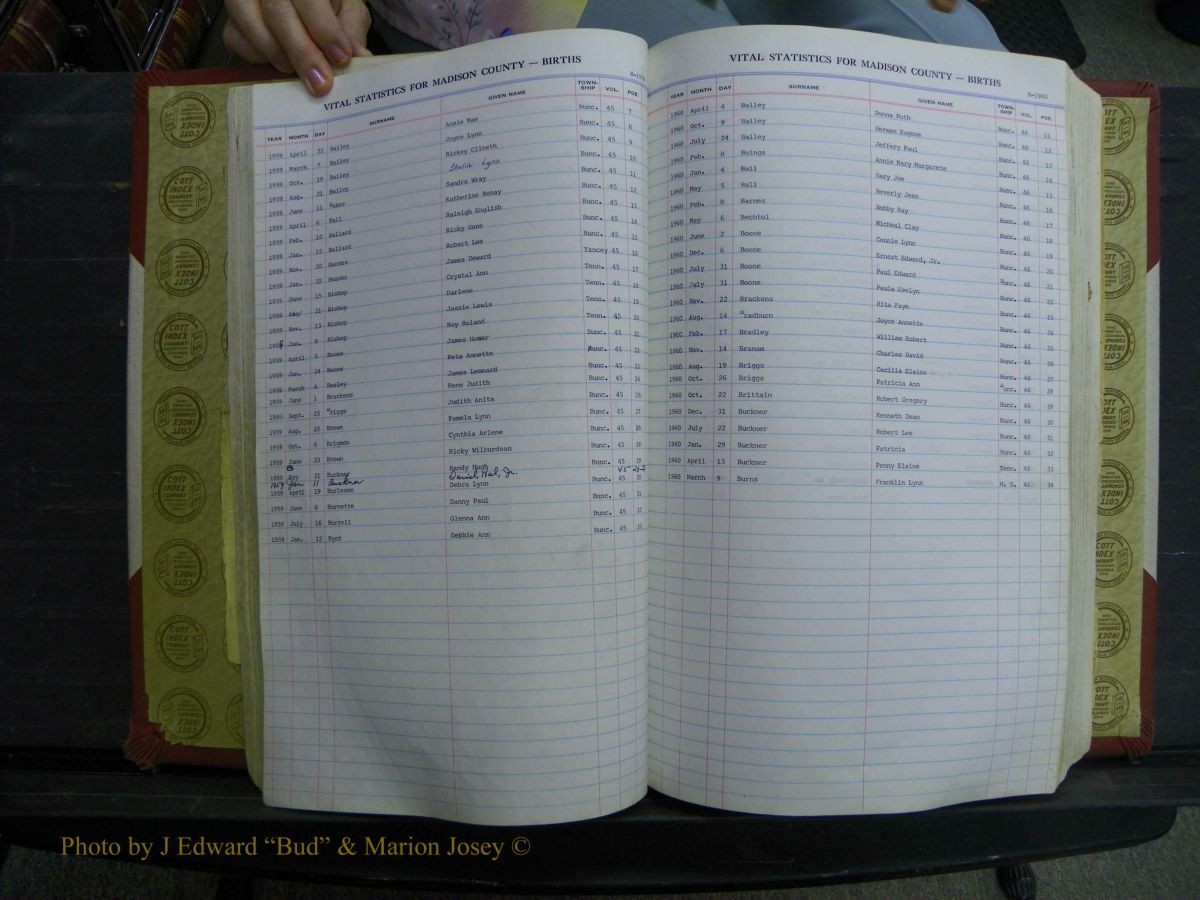 VITAL STATISTICS FOR MADISON COUNTY — BIRTHS
YEAR MONTH DAY SURNAME GIVEN NAME TOWN-SHIP VOL. PGE.
1959 April 22 Bailey Annie Mae Bunc. 45 7
1959 March 7 Bailey Joyce Lynn Bunc. 45 8
1959 Oct. 19 Bailey Rickey Clineth Bunc. 45 9
1959 Aug. 21 Bailey Shelia Lynn Bunc. 45 10
1959 June 11 Baker Sandra Wray Bunc. 45 11
1959 April 6 Ball Katherine Renay Bunc. 45 12
1959 Feb. 10 Ballard Raleigh English Bunc. 45 13
1959 Jan. 15 Ballard Ricky Gene Bunc. 45 14
1959 Nov. 20 Barnes Robert Lee Bunc. 45 15
1959 Jan. 22 Beaver James Deward Yancey 45 16
1959 June 15 Bishop Crystal Ann Tenn. 45 17
1959 Aug/ 21 Bishop Darlene Tenn. 45 18
1959 Nov. 13 Bishop Jessie Lewis Tenn. 45 19
1959 Jan. 9 Bishop Roy Roland Tenn. 45 20
1959 April 5 Boone James Homar Bunc. 45 21
1959 Jan. 24 Boone Reta Annette Bunc. 45 22
1959 March 4 Bosley James Leonard Bunc. 45 23
1959 June 1 Brackens Rene Judith Bunc. 45 24
1959 Sept. 15 Briggs Judith Anita Bunc. 45 25
1959 Aug. 10 Brown Pamela Lynn Bunc. 45 27
1959 Oct. 6 Brigmon Cynthia Arlene Bunc. 45 26
1959 June 23 Brown Ricky Wilburdean Bunc. 45 28
1959 May 21 Buckner Randy Hugh Bunc. 45 29
1959 Jan 11 Buckner David Hal, Jr. 45
1959 April 19 Burleson Debra Lynn Bunc. 45 30
1959 June 8 Burnette Danny Paul Bunc. 45 31
1959 July 16 Burrell Glenna Ann Bunc. 45 32
1959 Jan. 12 Byrd Debbie Ann Bunc. 45 33
VITAL STATISTICS FOR MADISON COUNTY — BIRTHS
B-1960
YEAR MONTH DAY SURNAME GIVEN NAME TOWN-SHIP VOL. PGE.
1960 April 4 Bailey Donna Ruth Bunc. 46 11
1960 Oct. 9 Bailey Herman Eugene Bunc. 46 12
1960 July 24 Bailey Jeffery Paul Bunc. 46 13
1960 Feb. 8 Boings Annie Mary Margarete Bunc. 46 14
1960 Jan. 4 Ball Gary Joe Bunc. 46 15
1960 May 5 Ball Beverly Jean Bunc. 46 16
1960 Feb. 8 Barnes Bobby Ray Bunc. 46 17
1960 May 6 Bechtol Micheal Clay Bunc. 46 18
1960 June 2 Boone Connie Lynn Bunc. 46 19
1960 Dec. 6 Boone Ernest Edward, Jr. Bunc. 46 20
1960 July 31 Boone Paul Edward Bunc. 46 21
1960 July 31 Boone Paula Evelyn Bunc. 46 22
1960 Nov. 22 Brackens Rita Faye Bunc. 46 23
1960 Aug. 14 Bradburn Joyce Annette Bunc. 46 24
1960 Feb. 17 Bradley William Robert Bunc. 46 25
1960 Nov. 14 Branam Charles David Bunc. 46 26
1960 Aug. 19 Briggs Cecilia Elaine Bunc. 46 27
1960 Oct. 26 Briggs Patricia Ann Bunc. 46 28
1960 Oct. 22 Brittain Robert Gregory Bunc. 46 29
1960 Dec. 31 Buckner Kenneth Dean Bunc. 46 30
1960 July 22 Buckner Robert Lee Bunc. 46 31
1960 Jan. 29 Buckner Patricia Bunc. 46 32
1960 April 13 Buckner Penny Elaine Tenn. 46 33
1960 March 9 Burns Franklin Lynn H. S. 46 34
COTT INDEX COMPANY
Photo by J Edward “Bud” & Marion Josey ©